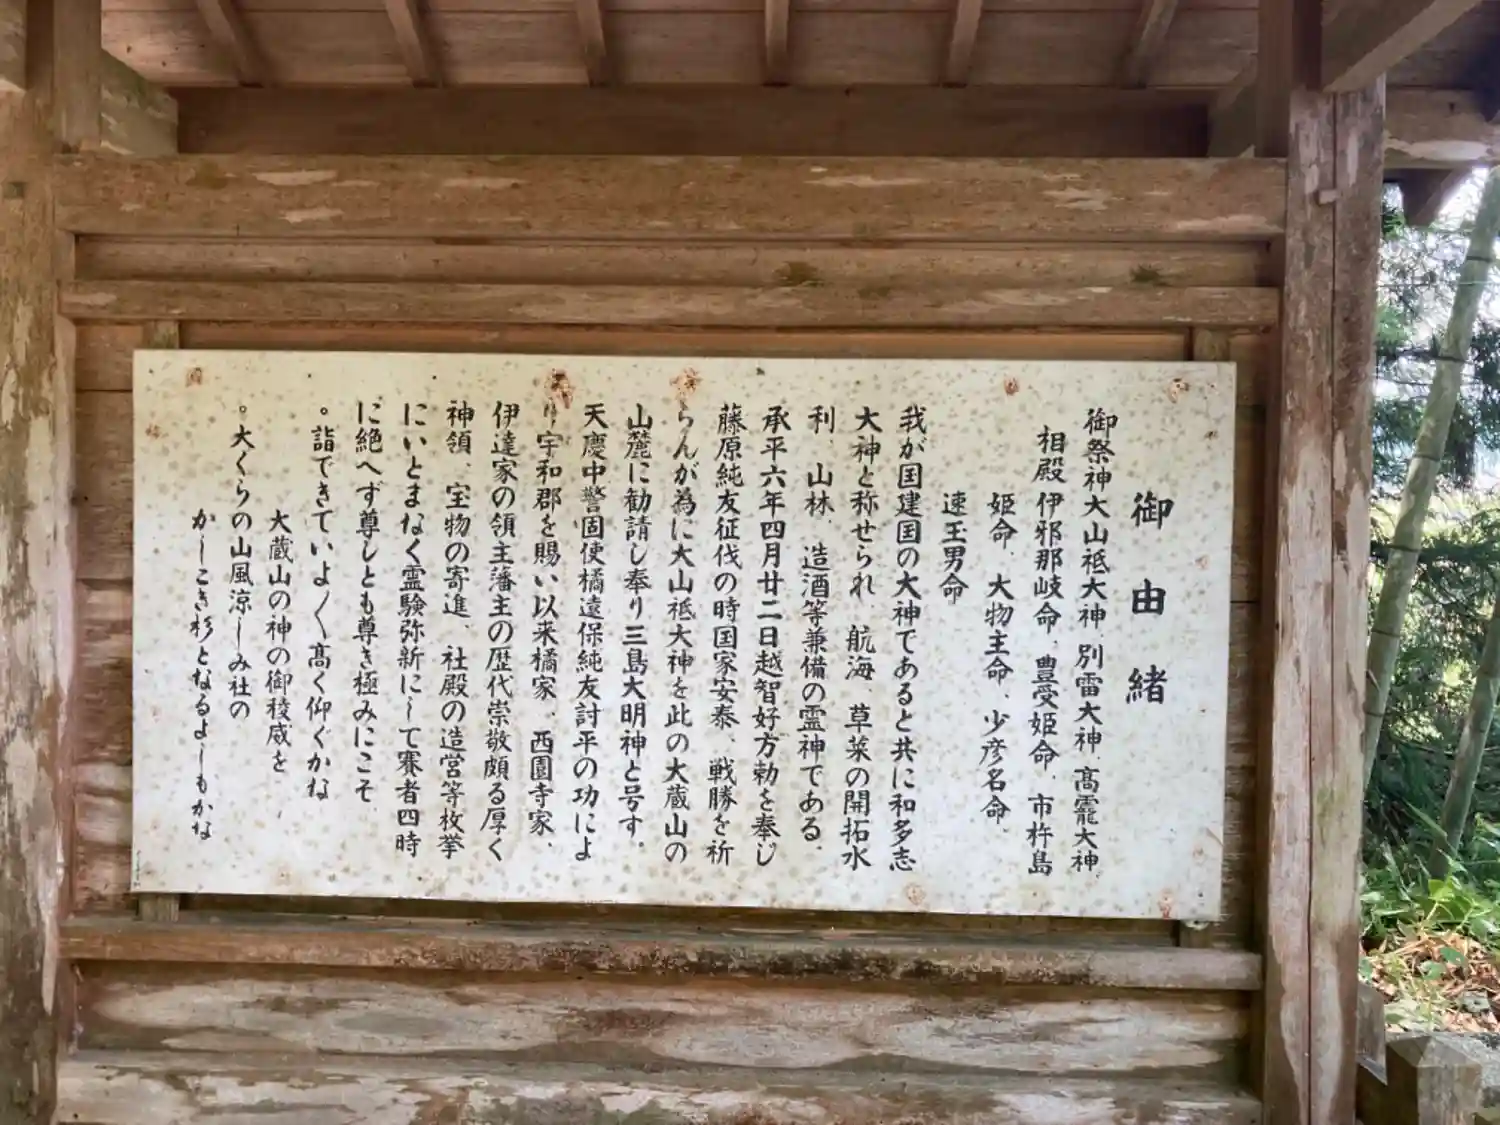 御由緒
御祭神大山祗大神、別雷大神、高龗大神
相殿 伊邪那岐命、豊受姫命、市杵島
姫命、大物主命、少彦名命、
速玉男命
我が国建国の大神であると共に和多志
大神と称せられ、航海、草菜の開拓水
利、山林、造酒等兼備の霊神である。
承平六年四月廿二日越智好方勅を奉じ
藤原純友征伐の時国家安泰、戦勝を祈
らんが為に大山祗大神を此の大蔵山の
山麓に勧請し奉り三島大明神と号す。
天慶中警固使橘遠保純友討平の功によ
り宇和郡を賜い以来橘家、西園寺家、
伊達家の領主藩主の歴代崇敬頗る厚く
神領、宝物の寄進、社殿の造営等枚挙
にいとまなく霊験弥新にして賽者四時
に絶へず尊しとも尊き極みにこそ
。詣できていよ〱高く仰ぐかな
大蔵山の神の御稜威を
。大くらの山風涼しみ社の
かしこき杉となるよしもかな